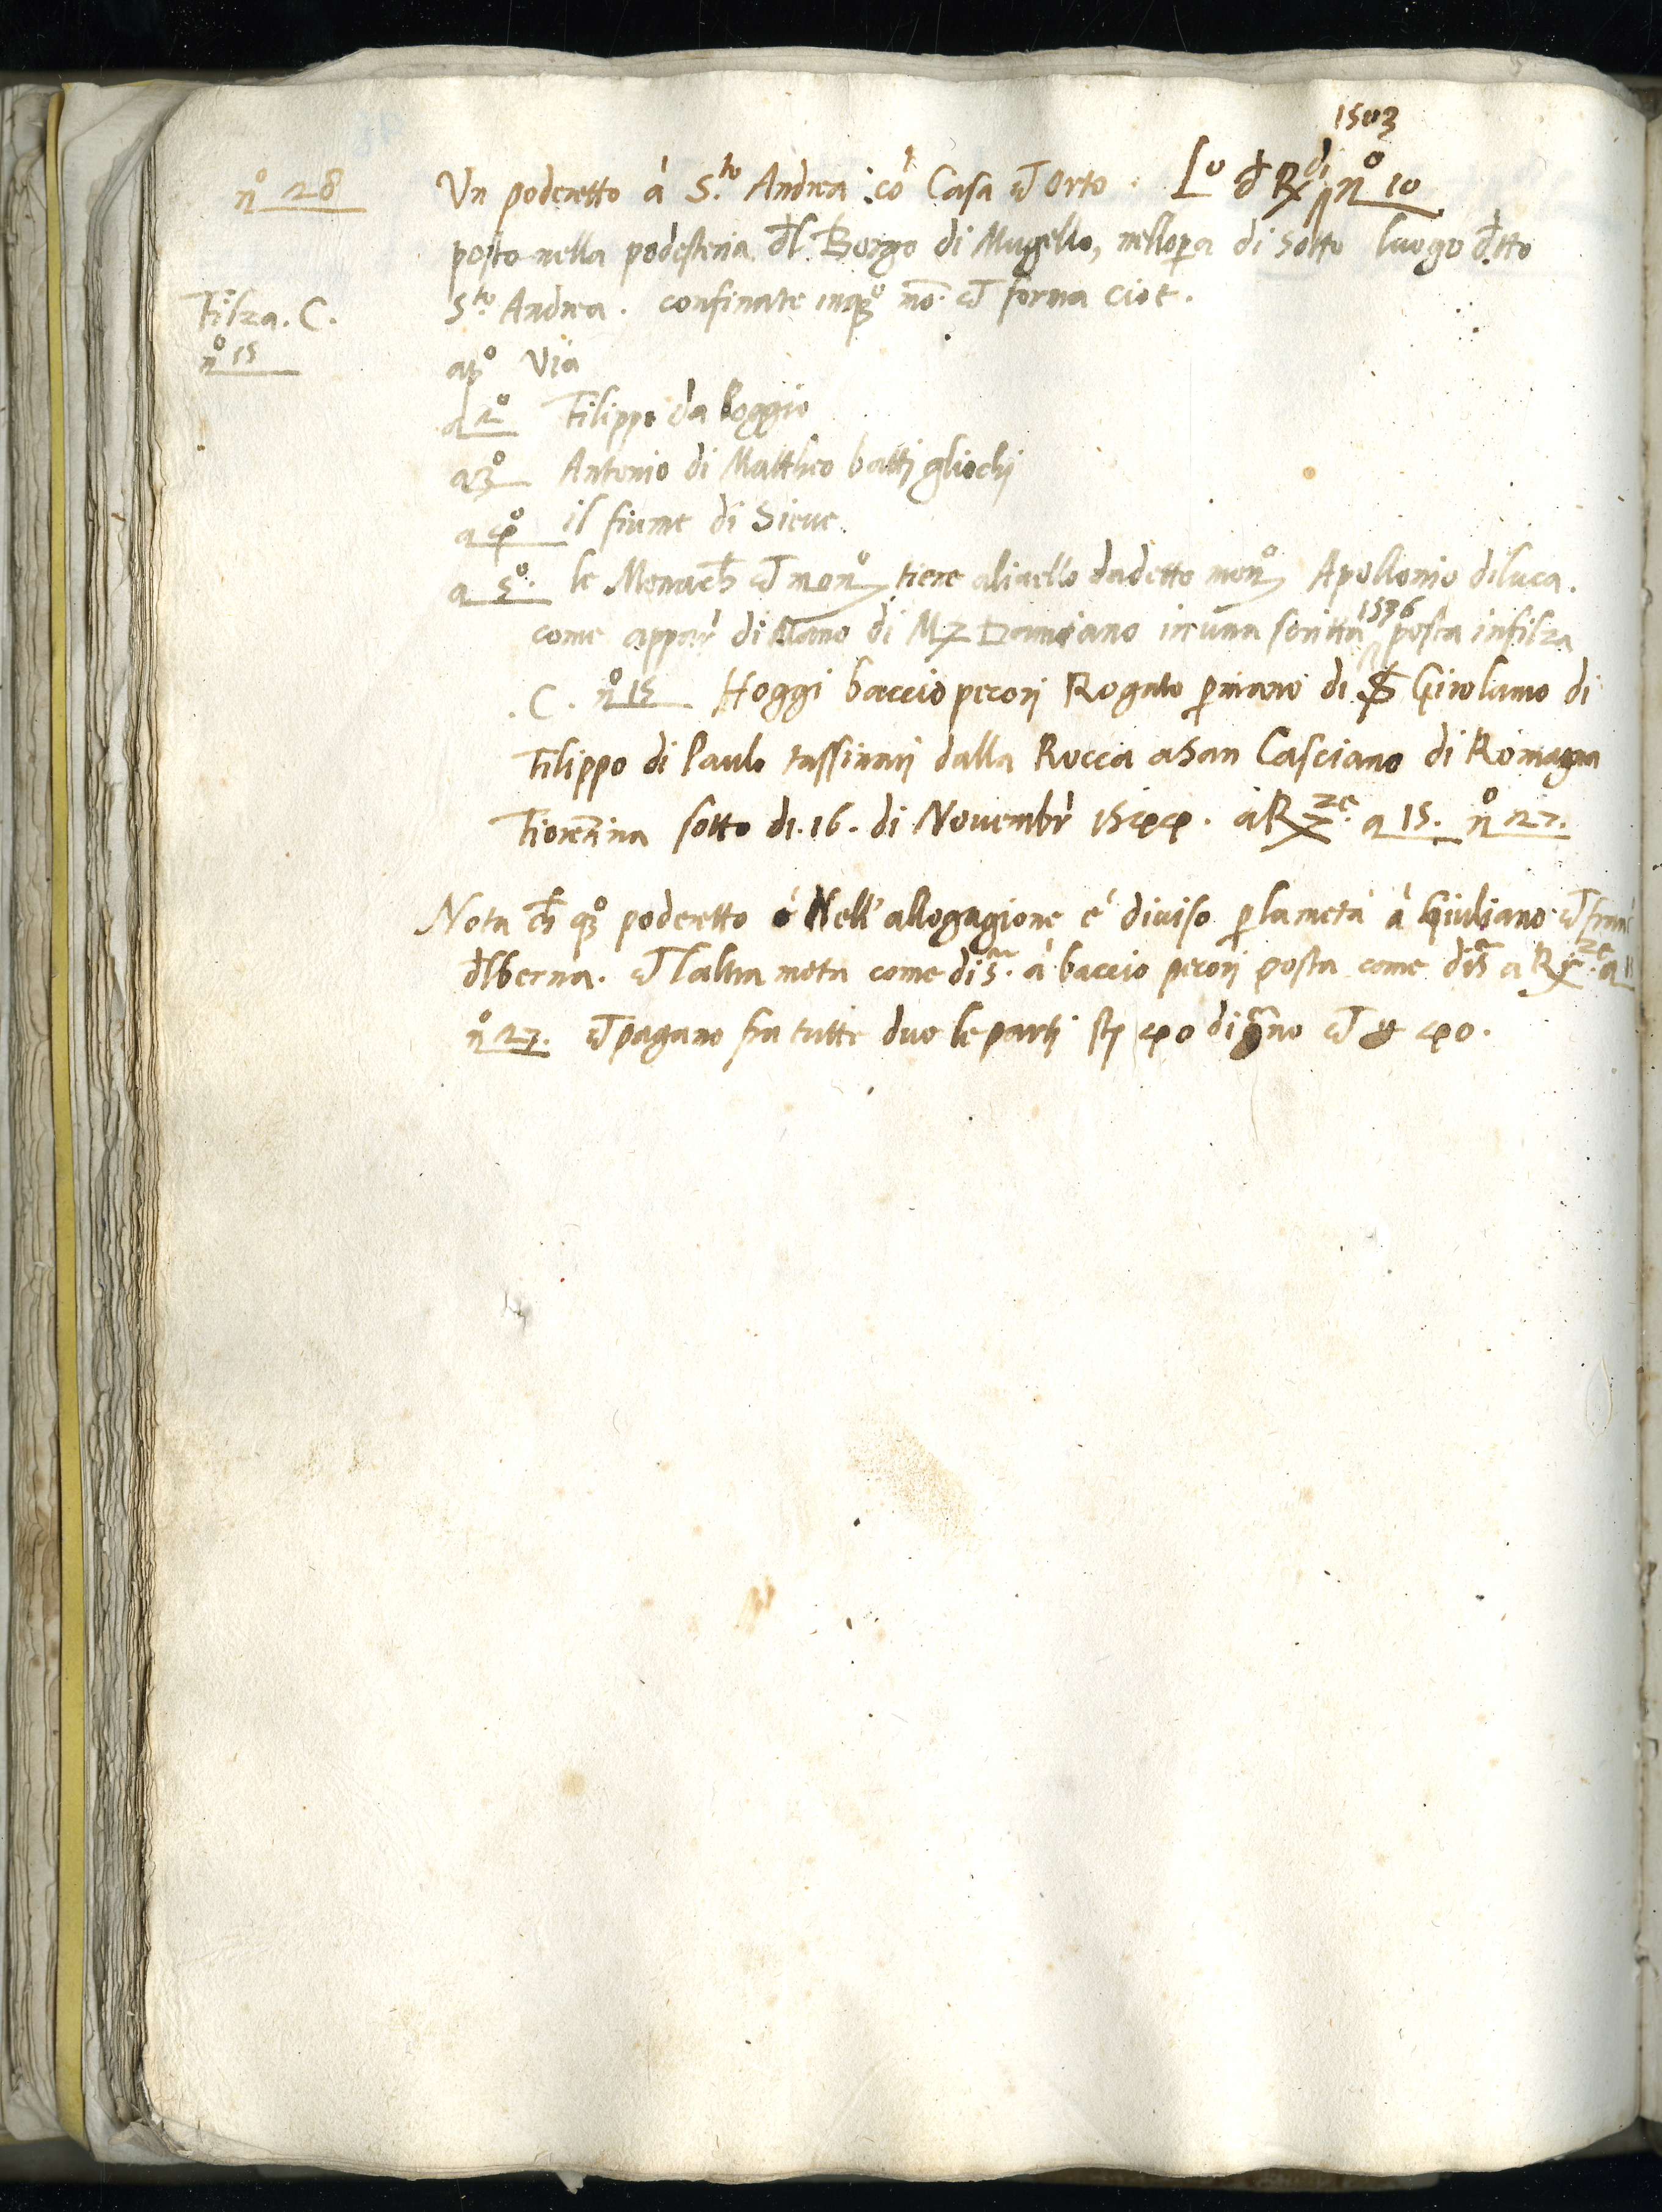 1503
nº 28 Un poderetto à S.to Andrea co Casa et Orto. Lº d R di nº 10
posto nella podesteria dl Borgo di Mugello, nellopa di sotto luogo dtto
Filza. C. S.to Andrea. confinate inqº no. et forma cioe.
nº 15
a pº Via
a 2º Filippo da Poggio
a 3º Antonio di Mattheo battigliochi
a 4º il fiume di Sieve
a 5º. le Monach et monº tiene alivello dadetto monº Apollonio diluca.
1536
come appar di Mano di M Damiano in una scritta posta infilza
.C. nº 15 Hoggi baccio pecorj Rogato p mano di S Girolamo di
Filippo di Paulo tassinarj dalla Rocca aSan Casciano di Romagna
Fiorentina sotto di .16. di Novembr 1544. à R ze a 15. nº 27.
Nota ch qº poderetto é Nell'allogagione e' diviso p la metà à Giuliano et
dlberna. et laltra metà come di sª. à baccio pecorj posta come di sª a R ze a
nº 27. et pagano fra tutte duo le partj stª 40 di grano et 40.